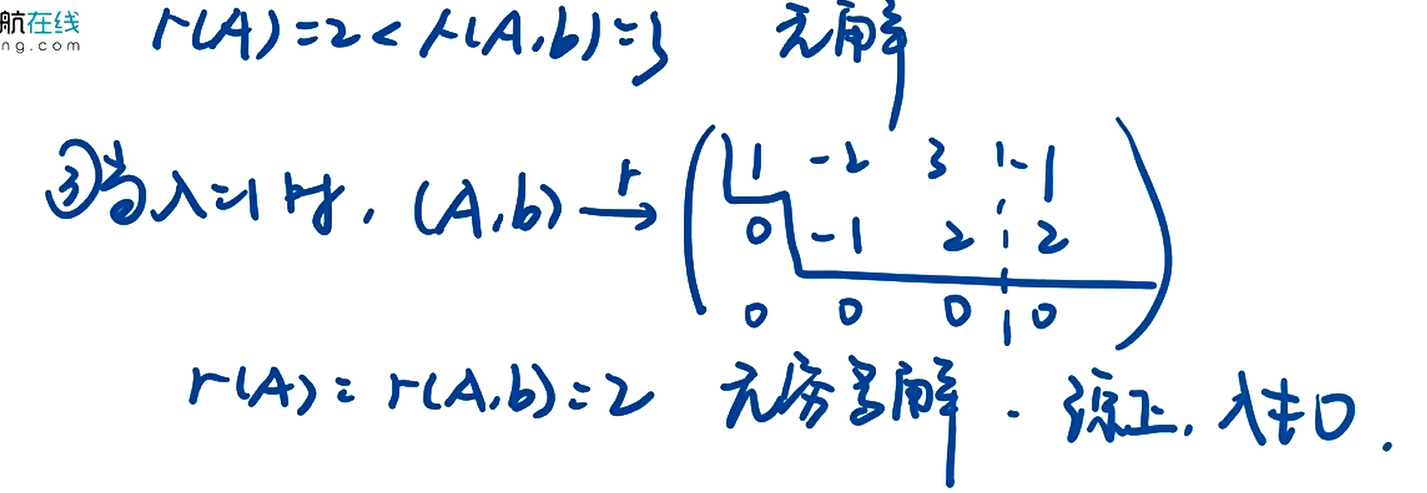 航在线
ng.com
r(A)=2<r(A,b)=3 无解
③当λ=1时,(A,b) r→ ( 1 -2 3 ¦ -1
0 -1 2 ¦ 2
0 0 0 ¦ 0 )
r(A)=r(A,b)=2 无穷多解. 综上,λ≠0.